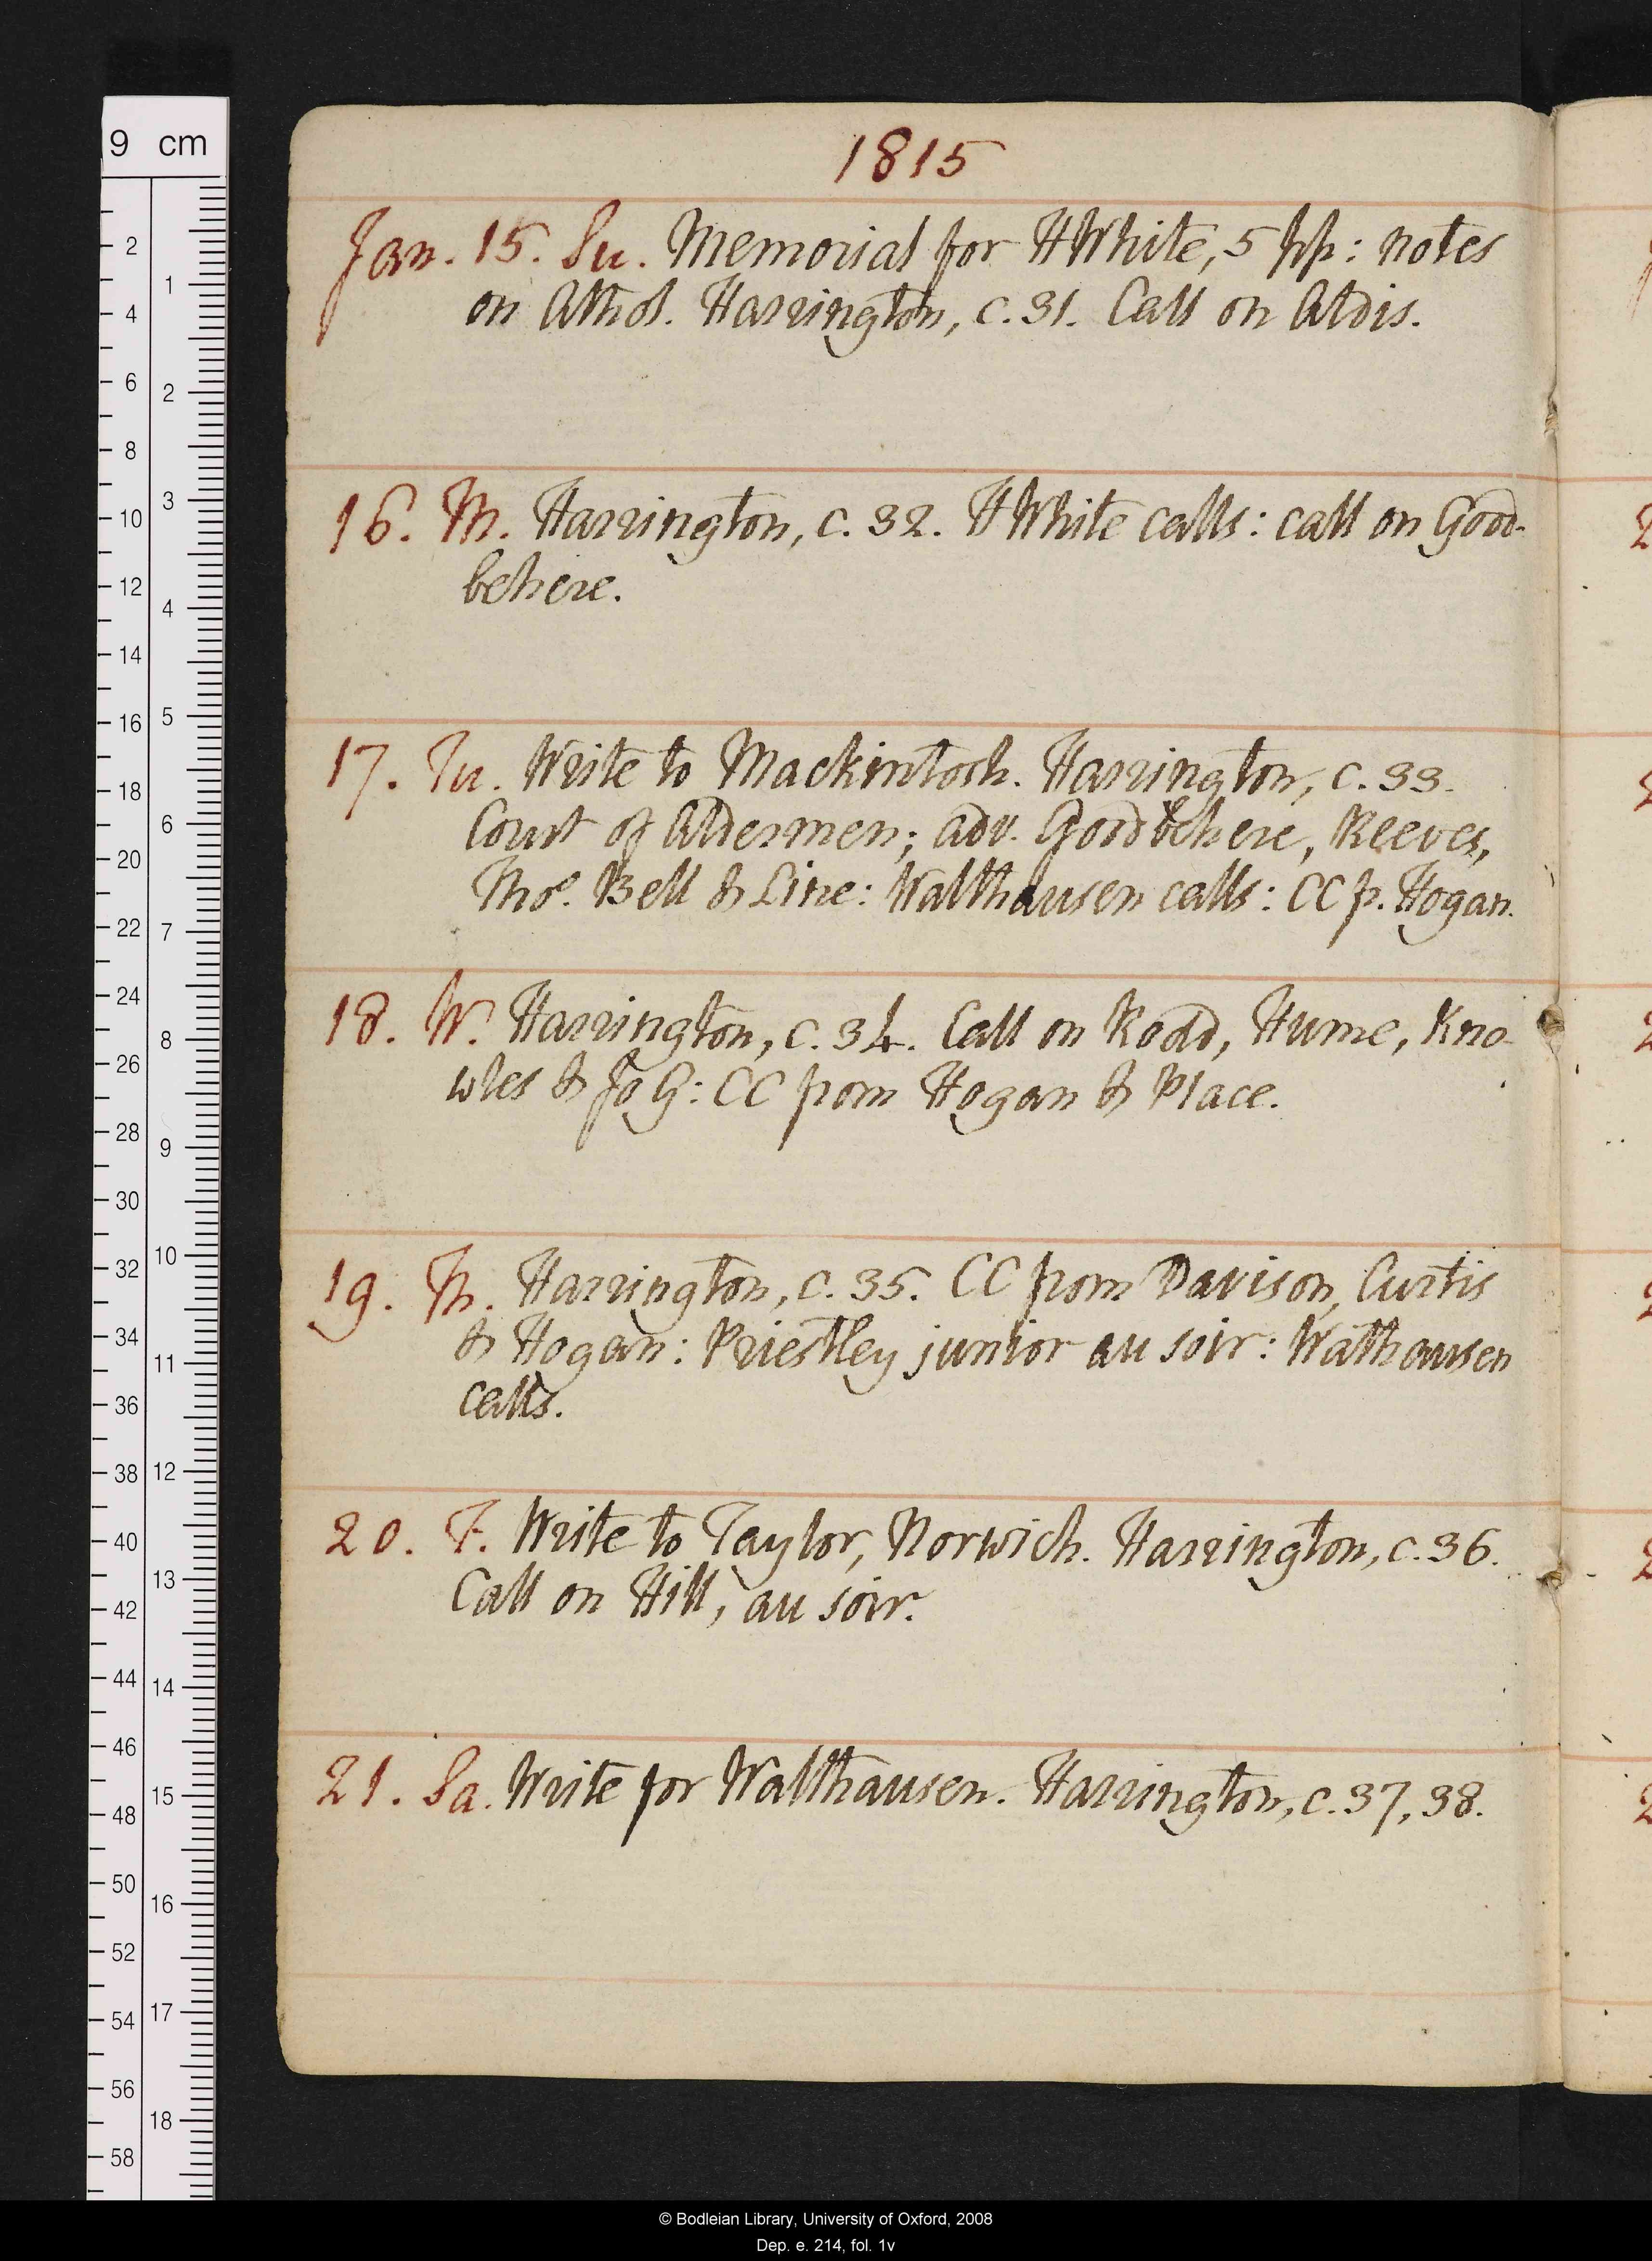 1815
Jan. 15. Su. Memorial for HWhite, 5 pp: notes
on Athol. Harrington, c. 31. Call on Aldis.
16. M. Harrington, c. 32. HWhite calls: call on Good-
behere.
17. Tu. Write to Mackintosh. Harrington, c. 33.
Court of Aldermen; adv. Goodbehere, Reeves,
Thos. Bell & Line: Walthausen calls: CC p. Hogan.
18. W. Harrington, c. 34. Call on Rodd, Hume, Kno-
wles & Jo G: CC from Hogan & Place.
19. Th. Harrington, c. 35. CC from Davison, Curtis
& Hogan: Priestley junior au soir: Walthausen
calls.
20. F. Write to Taylor, Norwich. Harrington, c. 36.
Call on Hill, au soir.
21. Sa. Write for Walthausen. Harrington, c. 37, 38.
9 cm
2
4
6
8
10
12
14
16
18
20
22
24
26
28
30
32
34
36
38
40
42
44
46
48
50
52
54
56
58
1
2
3
4
5
6
7
8
9
10
11
12
13
14
15
16
17
18
© Bodleian Library, University of Oxford, 2008
Dep. e. 214, fol. 1v